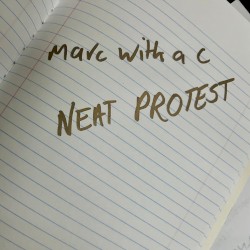 Marc with a C
NEAT PROTEST